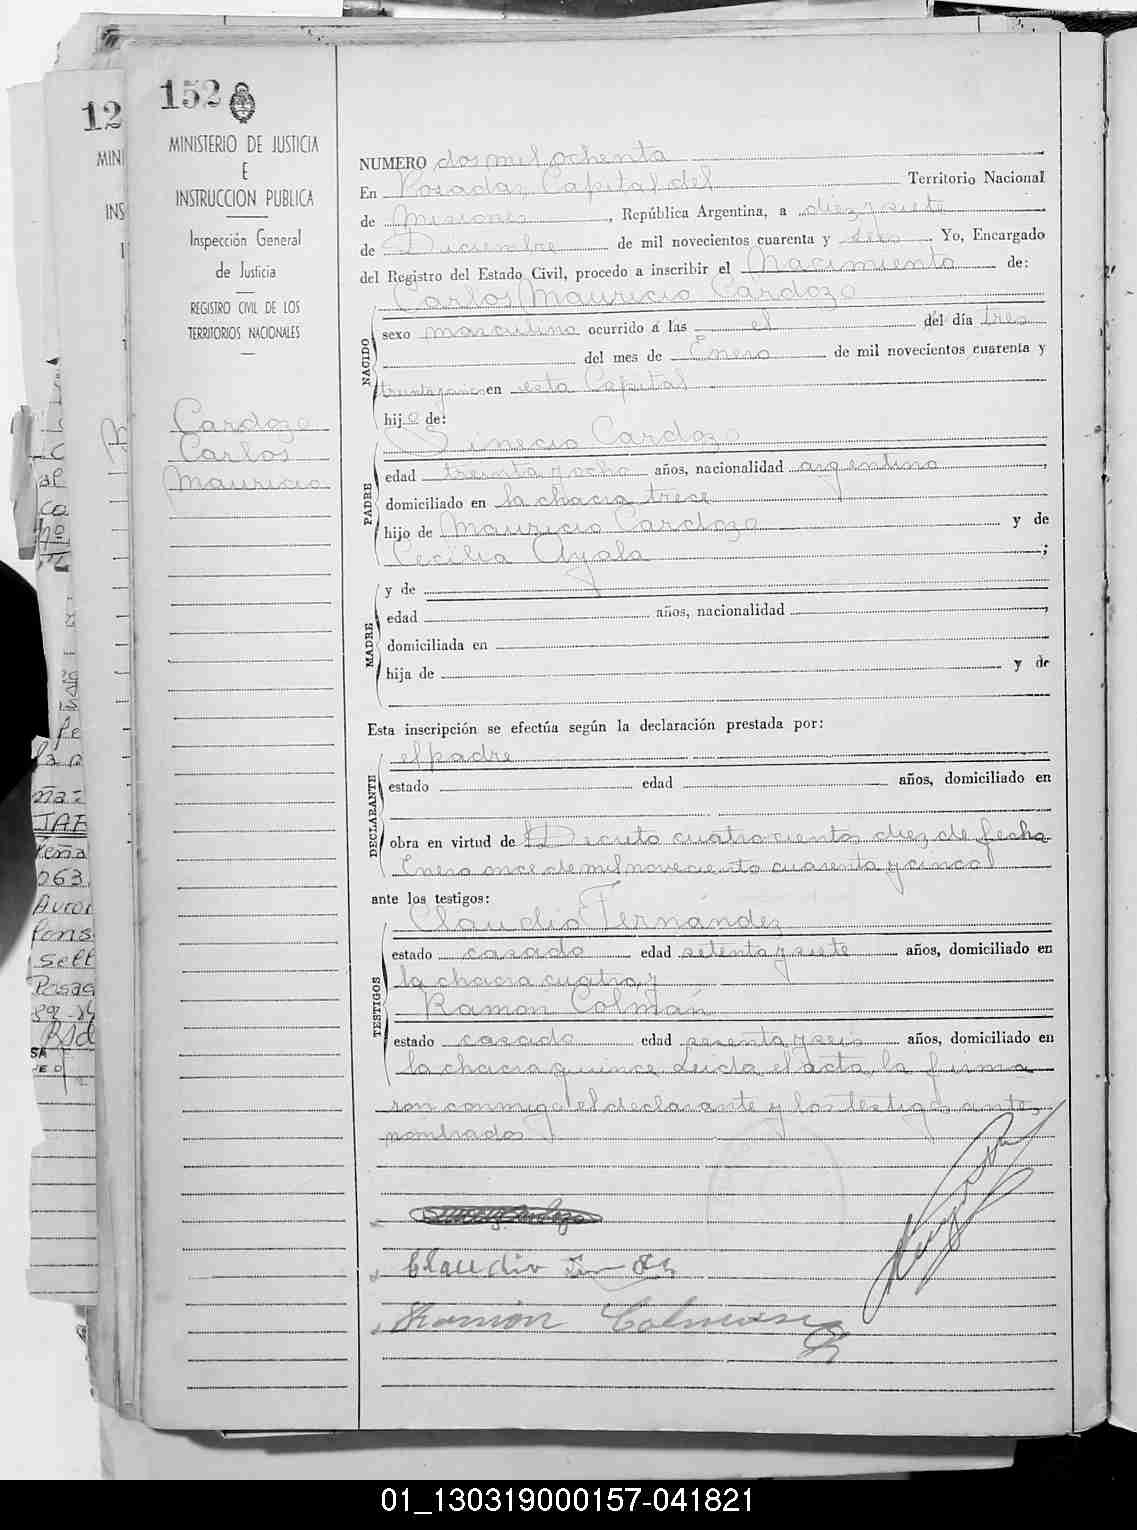 152
12
MINISTERIO DE JUSTICIA
E
INSTRUCCION PUBLICA
Inspección General
de Justicia
REGISTRO CIVIL DE LOS
TERRITORIOS NACIONALES
MINI
INS
Cardozo
Carlos
Mauricio
NUMERO dos mil ochenta
En Posadas, Capital del Territorio Nacional
de Misiones, República Argentina, a diez y siete
de Diciembre de mil novecientos cuarenta y seis. Yo, Encargado
del Registro del Estado Civil, procedo a inscribir el Nacimiento de:
Carlos Mauricio Cardozo
NACIDO
sexo masculino ocurrido á las el del día tres
del mes de Enero de mil novecientos cuarenta y
en esta Capital
hijo de:
Cardozo
PADRE
edad treinta y ocho años, nacionalidad argentino,
domiciliado en la chacra trece
hijo de Mauricio Cardozo y de
Cecilia Ayala;
MADRE
y de
edad años, nacionalidad,
domiciliada en
hija de y de
Esta inscripción se efectúa según la declaración prestada por:
DECLARANTE
el padre
estado edad años, domiciliado en
obra en virtud de Decreto cuatrocientos diez de fecha
Enero once de mil novecientos cuarenta y cinco
ante los testigos:
TESTIGOS
Claudio Fernández
estado casado edad setenta y siete años, domiciliado en
la chacra cuatro y
Ramon Colmán
estado casado edad sesenta y seis años, domiciliado en
la chacra quince. Leida el acta, la firma
ron conmigo el declarante y los testigos antes
nombrados
Claudio
Ramón Colman
Auror
063
Posad
01_130319000157-041821